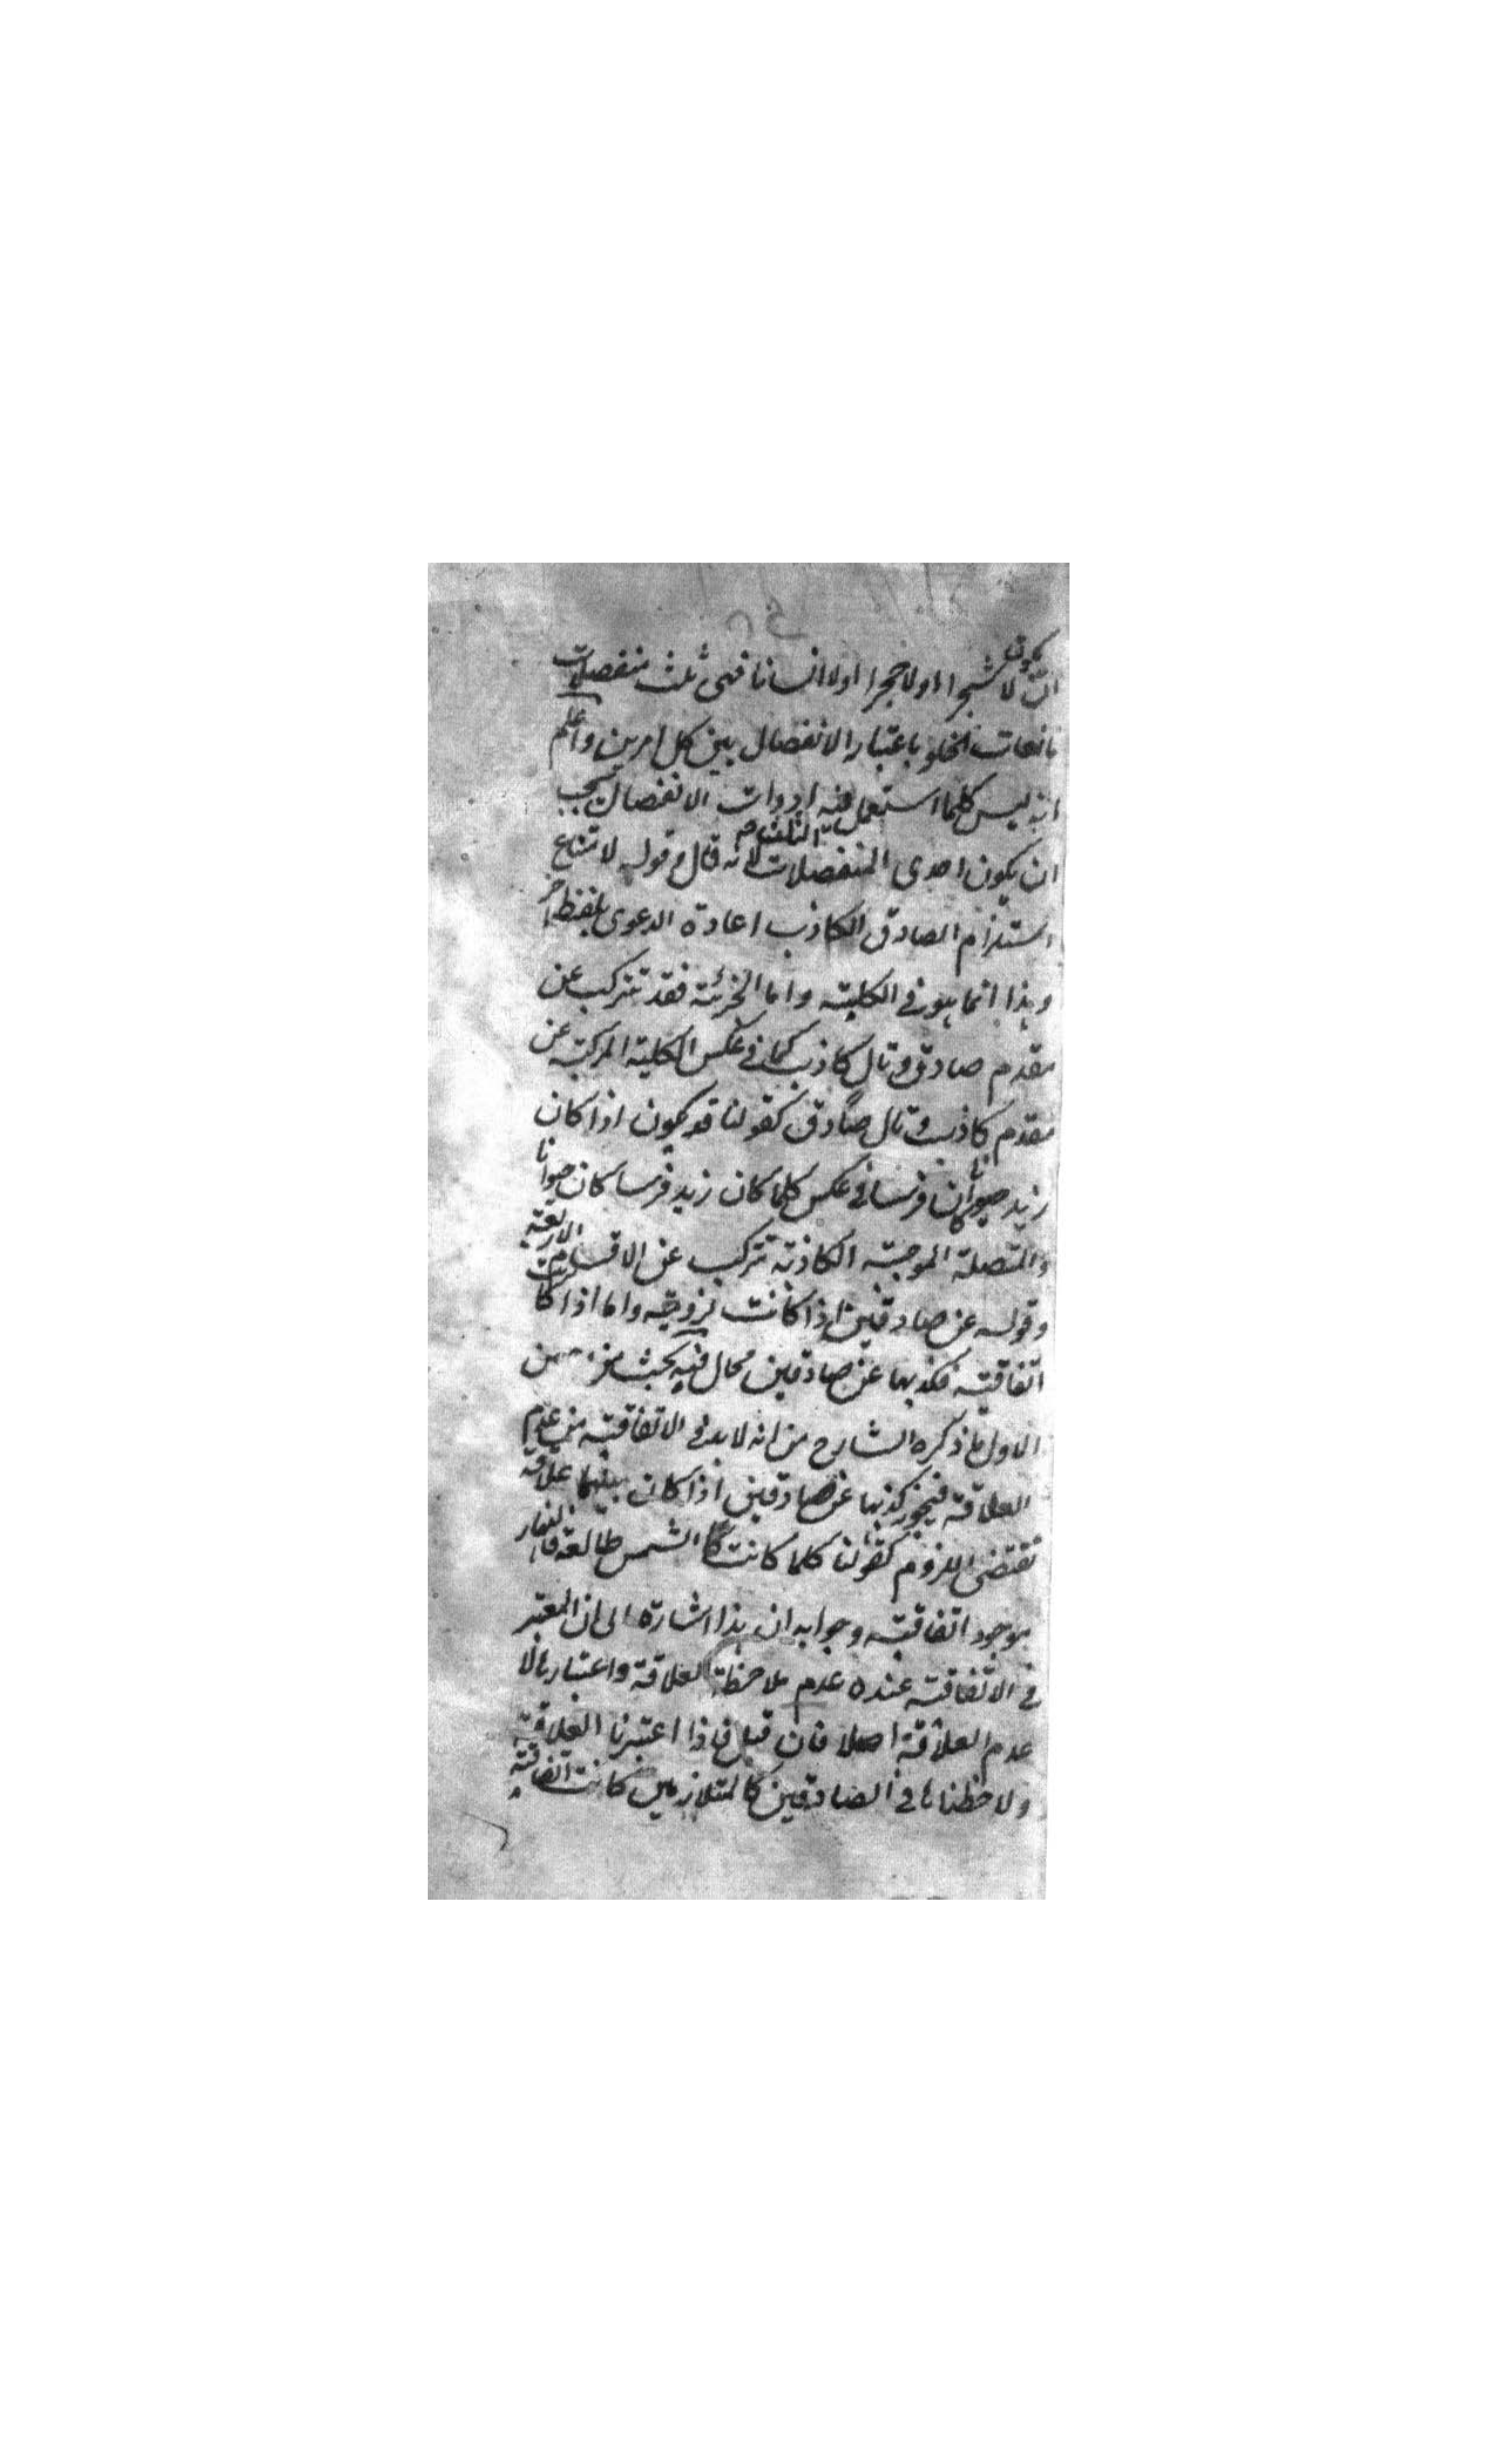 ان يكون لا شجرا او لا حجرا او لا انسانا فهى ثلث منفصلات
مانعات الخلو باعتبار الانفصال بين كل امرين واعلم
انه ليس كلما استعمل فيه ادوات الانفصال يجب
ان يكون احدى المنفصلات الثلث لانه قال وقوله لامتناع
استلزام الصادق الكاذب اعادة الدعوى بلفظ اخر
وهذا انما هو فى الكلية واما الجزئية فقد تتركب عن
مقدم صادق وتال كاذب كما فى عكس الكلية المركبة عن
مقدم كاذب وتال صادق كقولنا قد يكون اذا كان
زيد حيوانا كان فرسا فى عكس كلما كان زيد فرسا كان حيوانا
والمتصلة الموجبة الكاذبة تتركب عن الاقسام الاربعة
وقوله عن صادقين اذا كانت لزومية واما اذا كانت
اتفاقية فكذبها عن صادقين محال فيه بحث من
الاول ما ذكره الشارح من انه لا بد فى الاتفاقية من عدم
العلاقة فيجوز كذبها عن صادقين اذا كان بينهما علاقة
تقتضى اللزوم كقولنا كلما كانت الشمس طالعة فالنهار
موجود اتفاقية وجوابه ان هذا اشارة الى ان المعتبر
فى الاتفاقية عنده عدم ملاحظة العلاقة واعتبارها لا
عدم العلاقة اصلا فان قيل فاذا اعتبرنا العلاقة
ولاحظناها فى الصادقين كالمتلازمين كانت اتفاقية